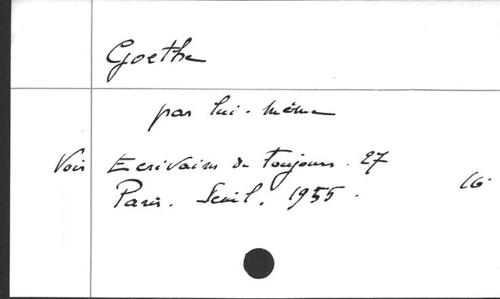 Goethe
par lui-même
Voir Ecrivains de toujours. 27
Paris. Seuil. 1955. 16°